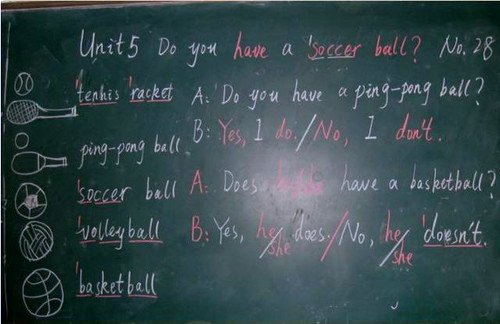 Unit 5 Do you have a 'soccer ball? No. 28
'tennis 'racket
ping-pong ball
'soccer ball
'volleyball
'basketball
A: Do you have a ping-pong ball?
B: Yes, I do. / No, I don't.
A: Does have a basketball?
B: Yes, he/she does. / No, he/she 'doesn't.